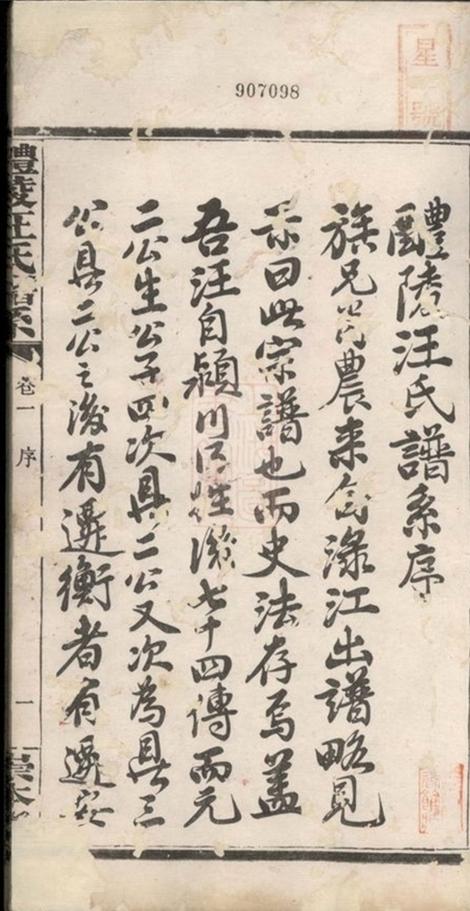 907098
星
號
醴陵汪氏譜系序
族兄芳農来自淥江出譜略見
示曰此宗譜也而史法存焉蓋
吾汪自潁川得姓後七十四傳而元
二公生公子四次具二公又次為具三
公具二公之後有遷衡者有遷安
醴陵汪氏譜系
卷一
序
一